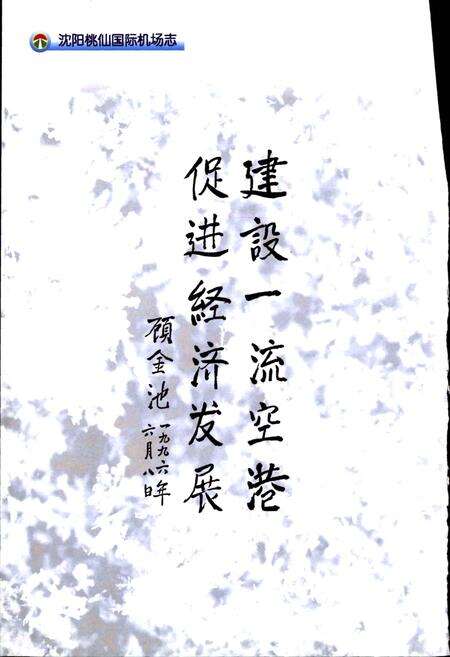 沈阳桃仙国际机场志
建設一流空港
促进經济发展
顾金池
一九九六年
六月八日